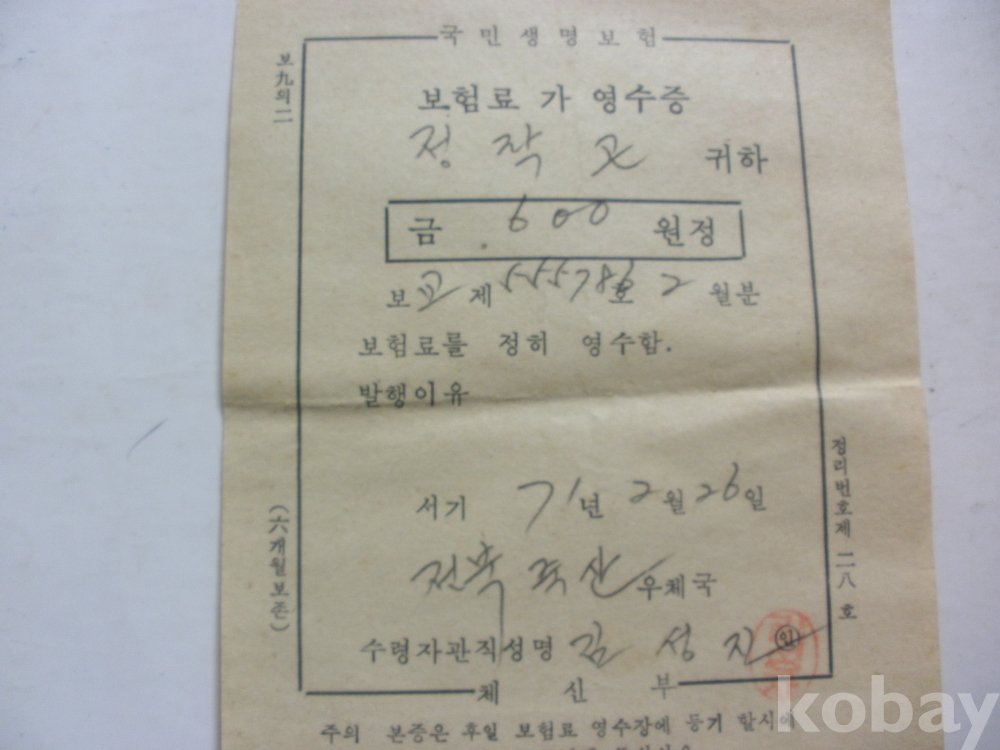 국민생명보험
보九의二
보험료 가 영수증
정 작 귀하
금 600 원정
보 교 제 555786호 2 월분
보험료를 정히 영수함.
발행이유
서기 71년 2월 26일
전북 우체국
수령자관직성명 김 성 지 인
체 신 부
정리번호제 一二八 호
(六개월보존)
주의 본증은 후일 보험료 영수장에 등기 할시에
kobay